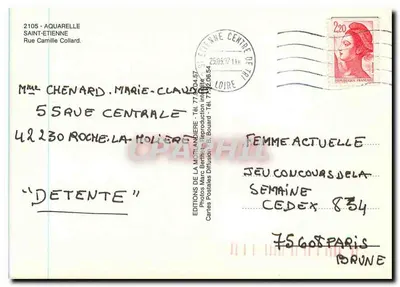 2105 - AQUARELLE
SAINT-ETIENNE
Rue Camille Collard.
ST-ETIENNE CENTRE DE TRI
LOIRE
2,20
Mme CHENARD. MARIE-CLAUDE
55 RUE CENTRALE
42230 ROCHE.LA.MOLIERE
"DETENTE"
EDITIONS DE LA
Photos Marc
Reproduction interdite
Cartes Postales Diffusion
CPAPHIL
FEMME ACTUELLE
JEU CONCOURS DE LA
SEMAINE
CEDEX 834
75608 PARIS
BRUNE